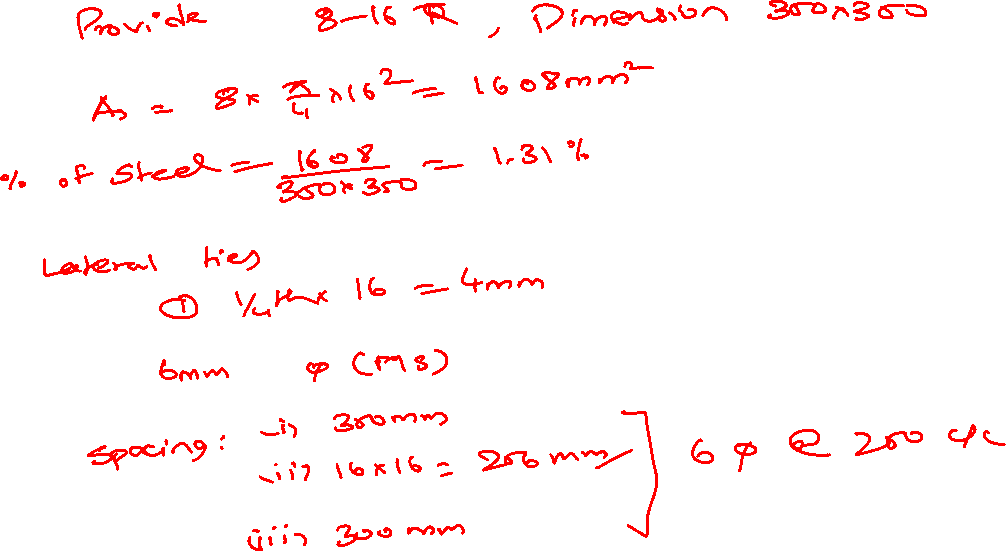 Provide 8-16 , Dimension 350x350
As = 8 x π/4 x 16² = 1608 mm²
% of Steel = 1608 / 350x350 = 1.31 %
Lateral ties
① 1/4th x 16 = 4mm
6mm φ (MS)
Spacing: i) 350mm
ii) 16x16 = 256 mm
6 φ @ 250 c/c
iii) 300 mm